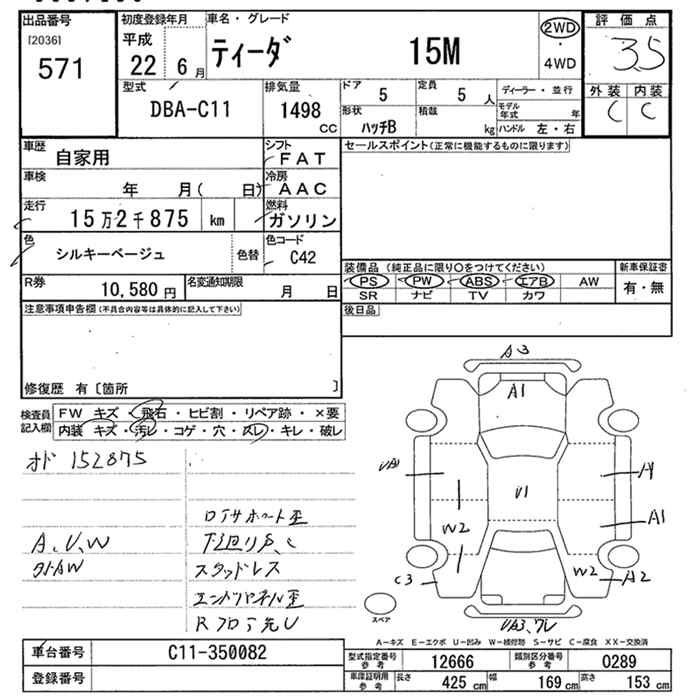 出品番号 初度登録年月 車名・グレード 評価点
[2036]
571
平成 22 年 6 月 ティーダ 15M 2WD・4WD 3.5
外装 内装
C C
型式 DBA-C11 排気量 1498 CC
ドア 5 定員 5 人 ディーラー・並行
形状 ハッチB 積載 kg モデル年式 年
ハンドル 左・右
車歴 自家用 シフト FAT セールスポイント(正常に機能するものに限ります)
車検 年 月( 日) 冷房 AAC
走行 15万2千875 km 燃料 ガソリン
色 シルキーベージュ 色替 色コード C42
R券 10,580 円 名変通知期限 月 日
装備品(純正品に限り○をつけてください) 新車保証書
PS PW ABS エアB AW 有・無
SR ナビ TV カワ
後日品
注意事項申告欄(不具合内容等は具体的に記入して下さい)
修復歴 有〔箇所 〕
検査員記入欄 FW キズ・飛石・ヒビ割・リペア跡・×要
内装 キズ・汚レ・コゲ・穴・スレ・キレ・破レ
オド 152875
ロアサポート歪
A、U、W 下廻り戸、C
スタッドレス
エンドパネル歪
Rフロア先U
A3
A1
UA1
U1
A1
W2
W2
C3
A2
UA3、ワレ
スペア
A-キズ E-エクボ U-凹み W-補修跡 S-サビ C-腐食 XX-交換済
車台番号 C11-350082
型式指定番号参考 12666 類別区分番号参考 0289
登録番号
車庫証明用参考 長さ 425 cm 幅 169 cm 高さ 153 cm